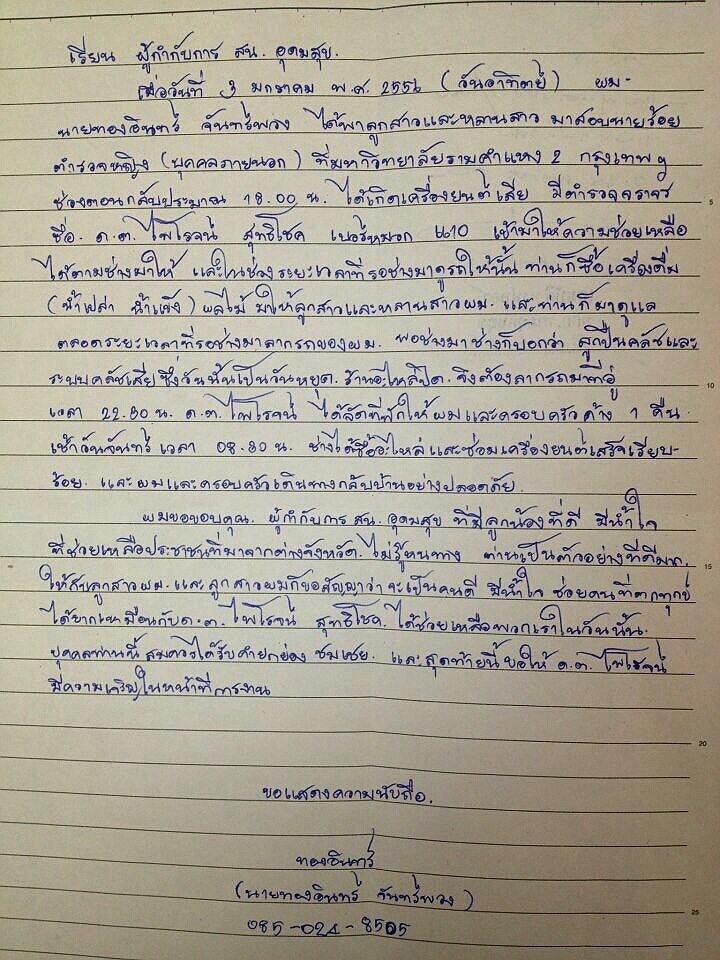 เรียน ผู้กำกับการ สน. อุดมสุข.
เมื่อวันที่ 3 มกราคม พ.ศ. 2556 (วันอาทิตย์) ผม-
นายทองอินทร์ จันทร์พวง ได้พาลูกสาวและหลานสาว มาสอบนายร้อย
ตำรวจหญิง (บุคคลภายนอก) ที่มหาวิทยาลัยรามคำแหง 2 กรุงเทพฯ
ช่วงตอนกลับประมาณ 18.00 น. ได้เกิดเครื่องยนต์เสีย มีตำรวจจราจร
ชื่อ. ด.ต. ไพโรจน์ สุทธิโชค เบอร์หมวก 4210 เข้ามาให้ความช่วยเหลือ
ได้ตามช่างมาให้ และในช่วงระยะเวลาที่รอช่างมาดูรถให้นั้น ท่านก็ซื้อเครื่องดื่ม
(น้ำเปล่า น้ำแข็ง) ผลไม้ มาให้ลูกสาวและหลานสาวผม. และท่านก็มาดูแล
ตลอดระยะเวลาที่รอช่างมาลากรถของผม. พอช่างมาช่างก็บอกว่า ลูกปืนคลัชและ
ระบบคลัชเสียซึ่งวันนั้นเป็นวันหยุด. ร้านอะไหล่ปิด. จึงต้องลากรถมาที่อู่
เวลา 22.30 น. ด.ต. ไพโรจน์ ได้จัดที่พักให้ผมและครอบครัวค้าง 1 คืน.
เช้าวันจันทร์ เวลา 08.30 น. ช่างได้ซื้ออะไหล่และซ่อมเครื่องยนต์เสร็จเรียบ-
ร้อย. และผมและครอบครัวเดินทางกลับบ้านอย่างปลอดภัย.
ผมขอขอบคุณ. ผู้กำกับการ สน. อุดมสุข ที่มีลูกน้องที่ดี มีน้ำใจ
ที่ช่วยเหลือประชาชนที่มาจากต่างจังหวัด. ไม่รู้หนทาง ท่านเป็นตัวอย่างที่ดีมาก.
ให้กับลูกสาวผม. และ ลูกสาวผมก็ขอสัญญาว่า จะเป็นคนดี มีน้ำใจ ช่วยคนที่ตกทุกข์
ได้ยากเหมือนกับ ด.ต. ไพโรจน์ สุทธิโชค. ได้ช่วยเหลือพวกเราในวันนั้น.
บุคคลท่านนี้ สมควรได้รับคำยกย่อง ชมเชย. และสุดท้ายนี้ ขอให้ ด.ต. ไพโรจน์
มีความเจริญในหน้าที่การงาน
ขอแสดงความนับถือ.
ทองอินทร์
(นายทองอินทร์ จันทร์พวง)
085-024-8505
5
10
15
20
25